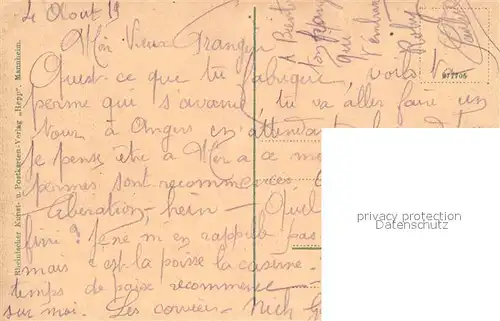 Le 4 Aout 19
Mon Vieux Frangin
Quest ce que tu fabrique vous
perme qui s'avance tu va aller faire un
tour à Angers en attendant
je pense être à Mer a ce mo
permes sont recommencées
libération, hein - Quel
fini? Je ne m'en rappelle pas
mais c'est la poisse la caserne
temps de paix recommence
sur moi. Les corvées - Nich
A Bientot
ton frangin
qui
t'embrasse
977705
Rheinischer Kunst- u. Postkarten-Verlag „Hepp", Mannheim.
privacy protection
Datenschutz